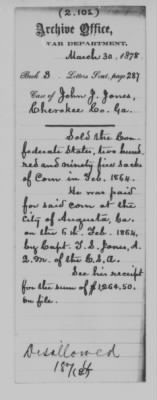 (2.102)
Archive Office,
WAR DEPARTMENT,
March 30, 1878.
Book B Letters Sent, page 287
Case of John J. Jones,
Cherokee Co. Ga.
Sold the Con-
federate States, two hund-
red and ninety five sacks
of Corn in Feb. 1864.
He was paid
for said corn at the
City of Augusta, Ga.
on the 6th Feb. 1864,
by Capt. T. S. Jones, A.
Q. M. of the C.S.A.
See his receipt
for the sum of $1264.50
on file.
Disallowed